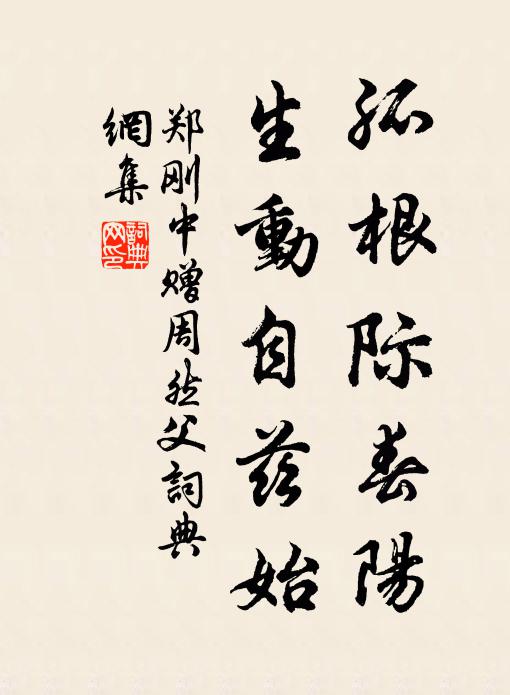 孤根际春陽
生動自兹始
郑刚中赠周然父詞典
網集
詞典网印